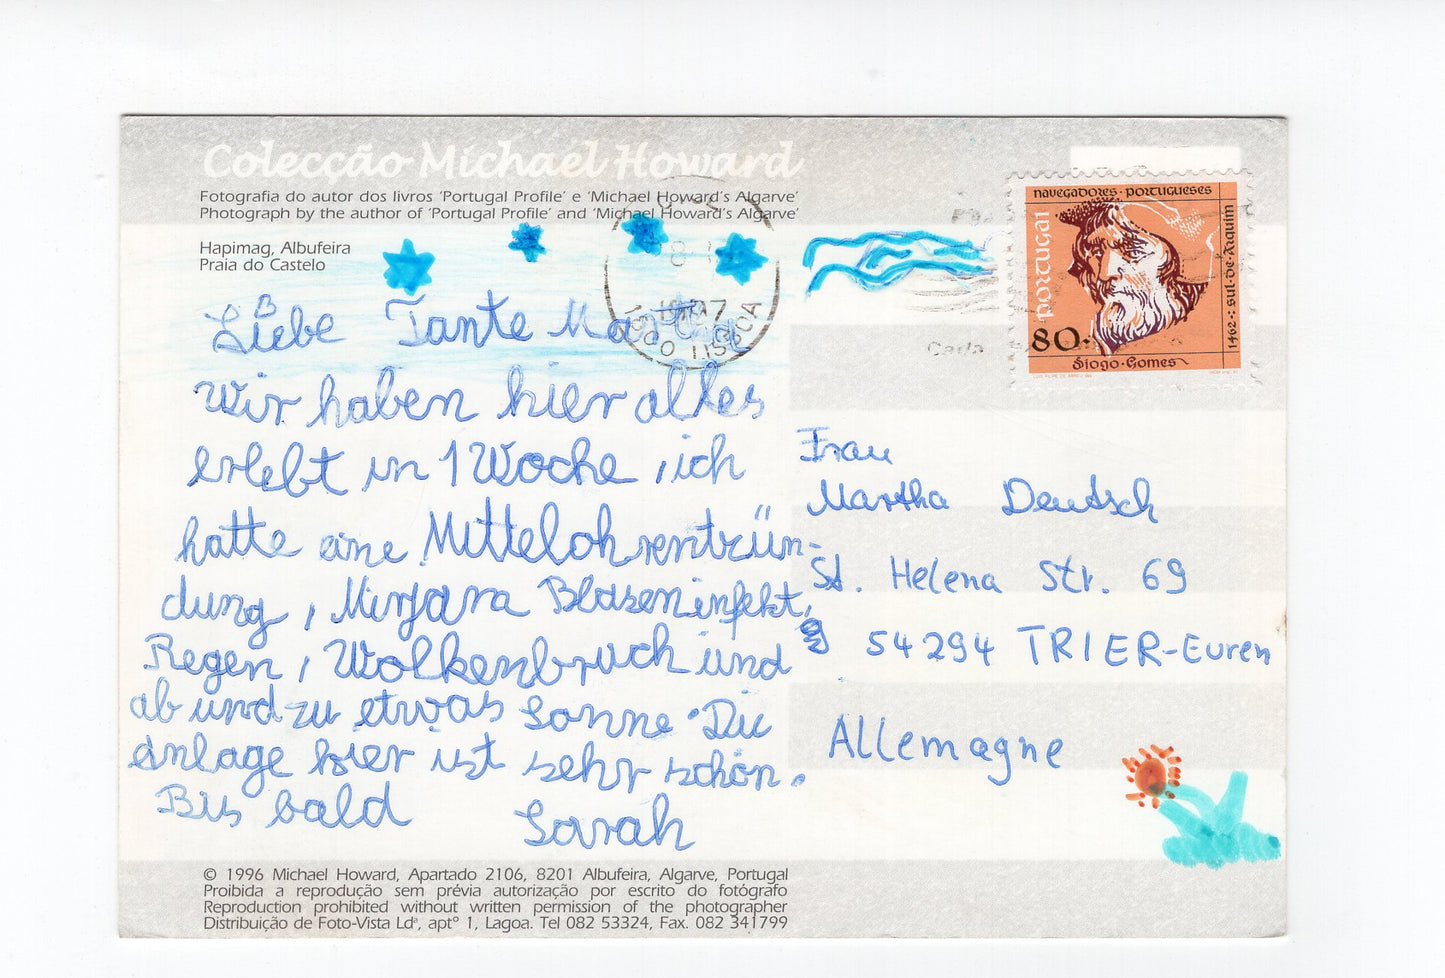 Colecção Michael Howard
Fotografia do autor dos livros 'Portugal Profile' e 'Michael Howard's Algarve'
Photograph by the author of 'Portugal Profile' and 'Michael Howard's Algarve'
Hapimag, Albufeira
Praia do Castelo
Liebe Tante Martha
Wir haben hier alles
erlebt in 1 Woche, ich
hatte eine Mittelohrentzün-
dung, Mirjara Blaseninfekt,
Regen, Wolkenbruch und
ab und zu etwas Sonne. Die
Anlage hier ist sehr schön.
Bis bald Sarah
1997
1900 LISBOA
NAVEGADORES · PORTUGUESES
PORTUGAL
80.
1462 · SUL · DE · ARQUIM
Diogo · Gomes
Frau
Martha Deutsch
St. Helena Str. 69
54294 TRIER-Euren
Allemagne
© 1996 Michael Howard, Apartado 2106, 8201 Albufeira, Algarve, Portugal
Proibida a reprodução sem prévia autorização por escrito do fotógrafo
Reproduction prohibited without written permission of the photographer
Distribuição de Foto-Vista Ldª, aptº 1, Lagoa. Tel 082 53324, Fax. 082 341799